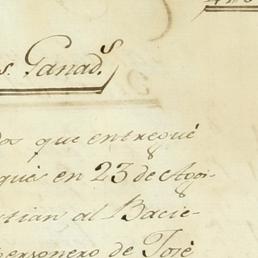 s. Ganad.s
dos que entregué
que en 23 de Agos-
stian al Bacie-
personero de José